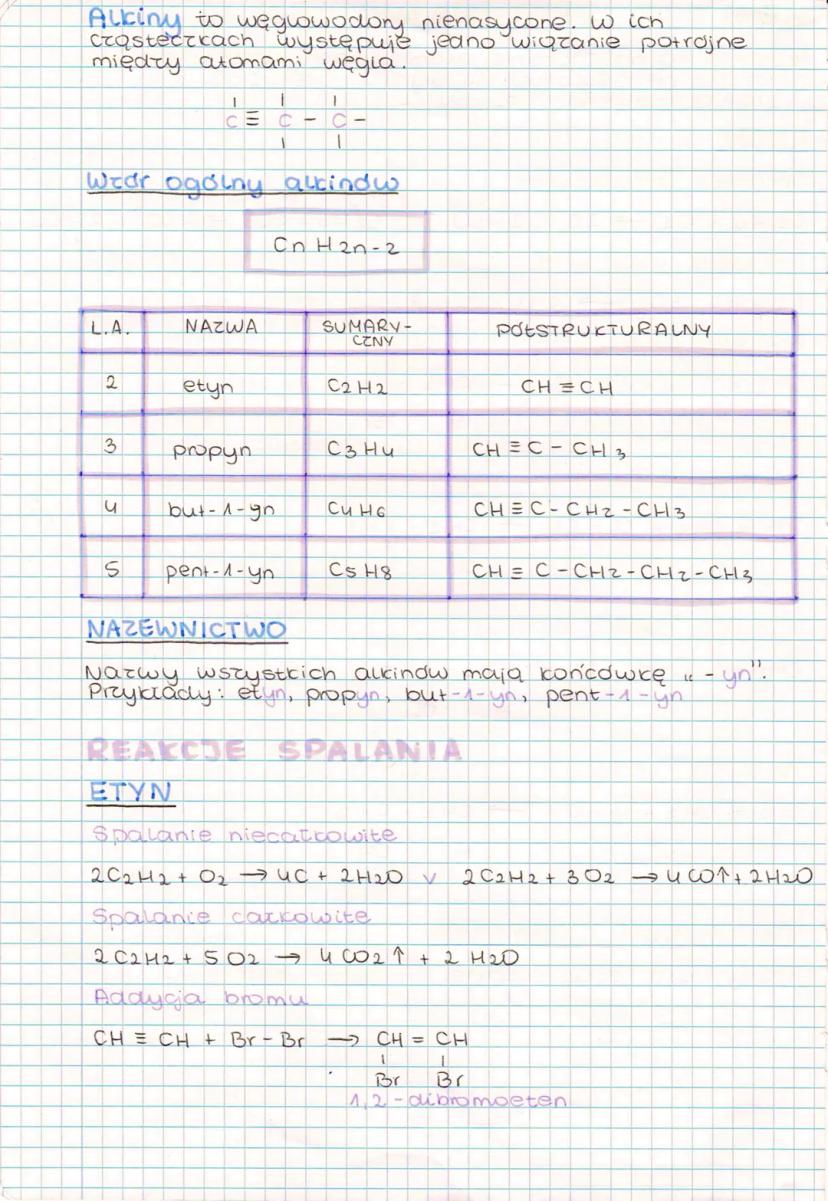 Alkiny to węglowodory nienasycone. W ich
cząsteczkach występuje jedno wiązanie potrójne
między atomami węgla.
C ≡ C - C -
Wzór ogólny alkinów
CnH2n-2
L.A. NAZWA SUMARY-CZNY PÓŁSTRUKTURALNY
2 etyn C2H2 CH ≡ CH
3 propyn C3H4 CH ≡ C - CH3
4 but-1-yn C4H6 CH ≡ C - CH2 - CH3
5 pent-1-yn C5H8 CH ≡ C - CH2 - CH2 - CH3
NAZEWNICTWO
Nazwy wszystkich alkinów mają końcówkę „-yn”.
Przykłady: etyn, propyn, but-1-yn, pent-1-yn
REAKCJE SPALANIA
ETYN
Spalanie niecałkowite
2C2H2 + O2 → 4C + 2H2O v 2C2H2 + 3O2 → 4CO↑ + 2H2O
Spalanie całkowite
2C2H2 + 5O2 → 4CO2↑ + 2H2O
Addycja bromu
CH ≡ CH + Br - Br → CH = CH
Br Br
1,2-dibromoeten